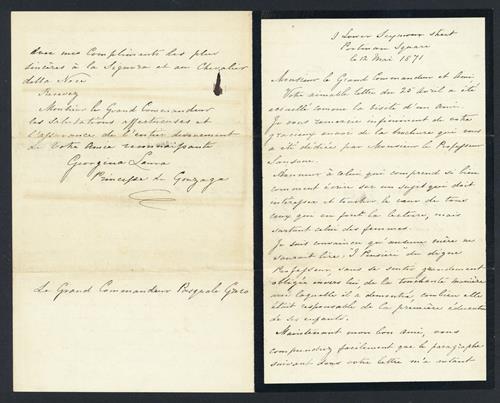 3 Lower Seymour street
Portman Square
le 12 Mai 1871
Monsieur le Grand Commandeur et Ami
Votre aimable lettre du 25 Avril a été
accueillie comme la visite d'un Ami.
Je vous remercie infiniment de votre
gracieux envoi de la brochure qui vous
a été dédiée par Monsieur le Professeur
Sansone.
Honneur à celui qui comprend si bien
comment écrire sur un sujet qui doit
intéresser et toucher le cœur de tous
ceux qui en font la lecture, mais
surtout celui des femmes.
Je suis convaincu qu'aucune mère ne
saurait lire "I Pensieri" du digne
Professeur, sans se sentir grandement
obligée envers lui, de la touchante manière
avec laquelle il a démontré, combien elle
était responsable de la première éducation
de ses enfants.
Maintenant mon bon Ami, vous
comprendrez facilement que le paragraphe
suivant dans votre lettre m'a autant
Avec mes Compliments les plus
sincères à la Signora et au Chevalier
della Noce
Recevez
Monsieur le Grand Commandeur
les salutations affectueuses et
l'assurance de l'entier dévouement
de Votre Amie reconnaissante
Georgina Laura
Princesse de Gonzaga
Le Grand Commandeur Pasquale Greco